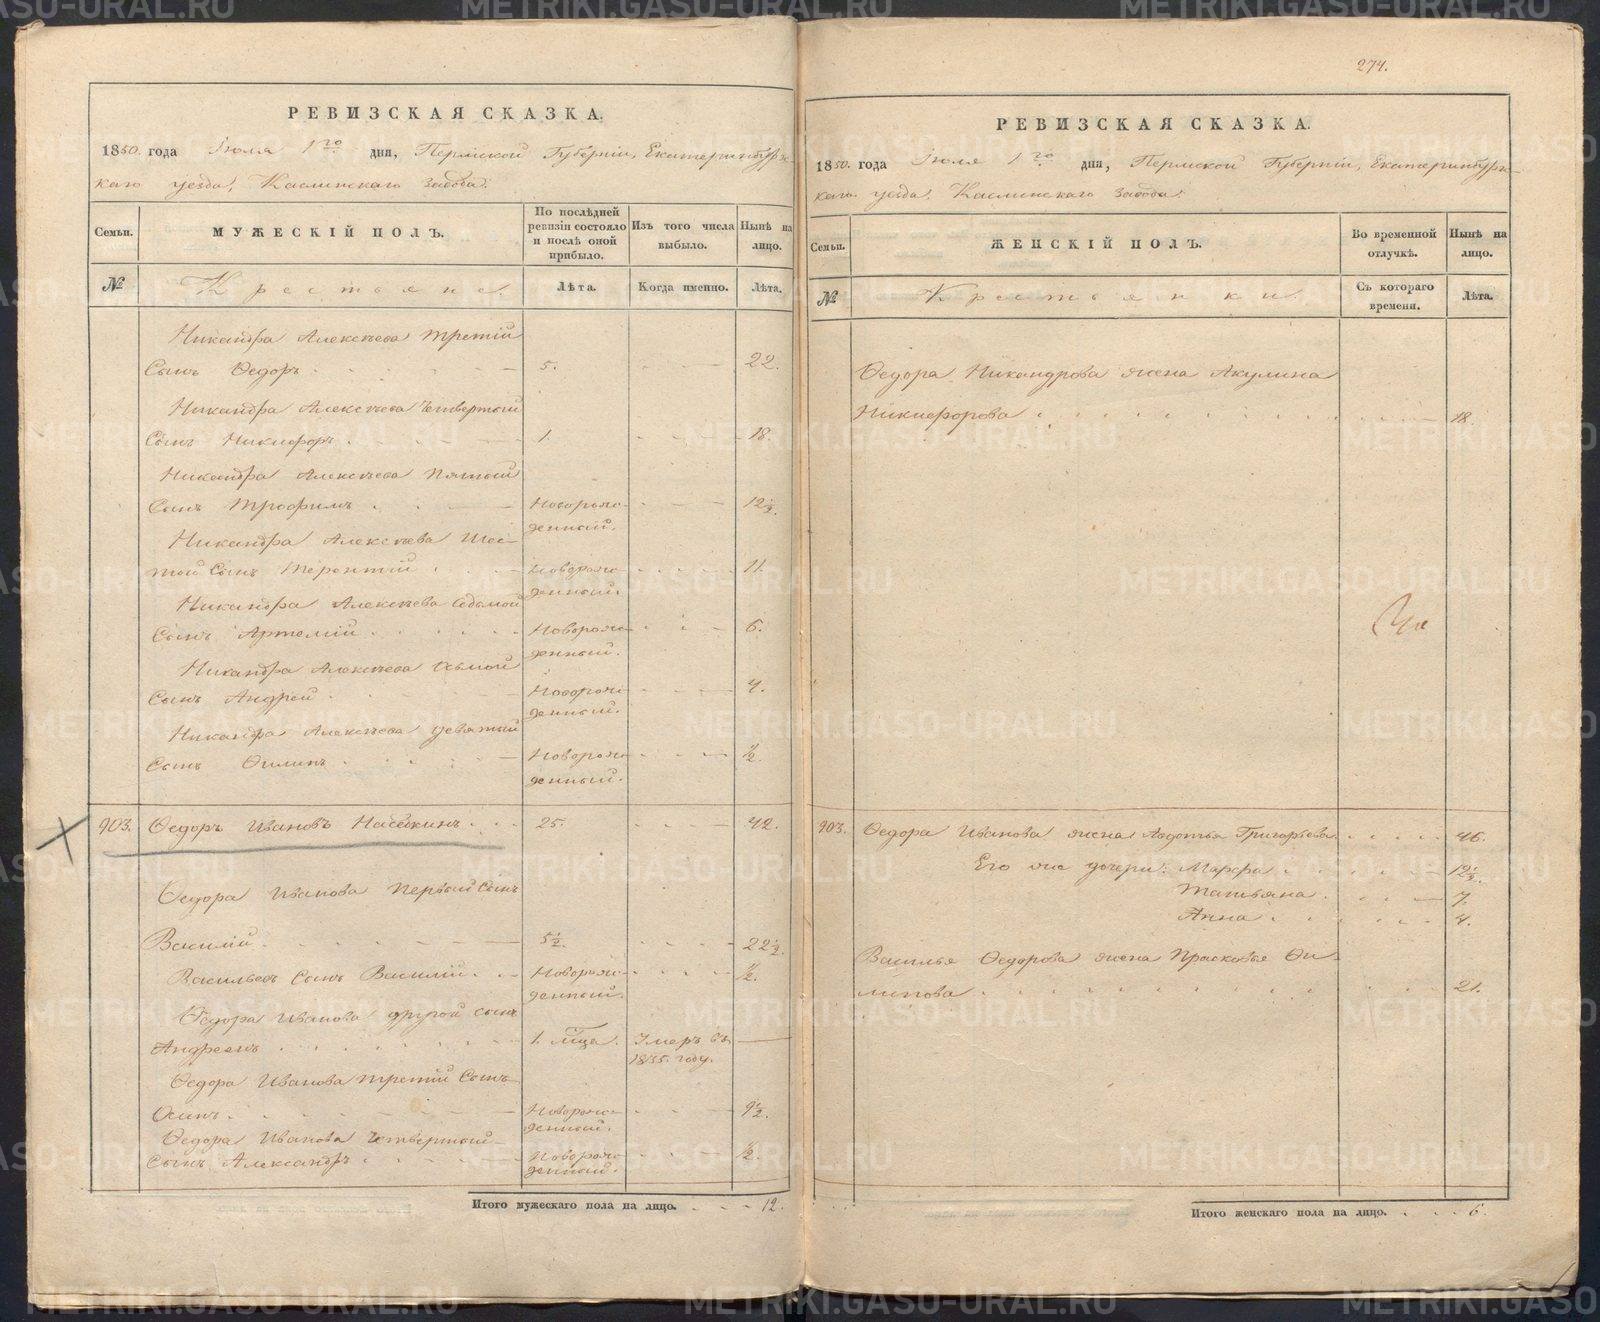 РЕВИЗСКАЯ СКАЗКА.
1850. года Іюля 1го дня, Пермской Губерніи, Екатеринбургс-
каго уезда, Каслинскаго завода.
Семьи.
МУЖЕСКІЙ ПОЛЪ.
По послѣдней ревизіи состояло и послѣ оной прибыло.
Изъ того числа выбыло.
Нынѣ на лицо.
№
Крестьяне.
Лѣта.
Когда именно.
Лѣта.
Никандра Алексѣева третій
Сынъ Ѳедоръ 5. 22.
Никандра Алексѣева четвертый
Сынъ Никифоръ 1. 18.
Никандра Алексѣева пятый
Сынъ Трофимъ Новорож- 12½.
денный.
Никандра Алексѣева шес-
той Сынъ Терентій Новорож- 11.
денный.
Никандра Алексѣева седьмой
Сынъ Артемій Новорож- 6.
денный.
Никандра Алексѣева осьмой
Сынъ Андрей Новорож- 4.
денный.
Никандра Алексѣева девятый
Сынъ Филипъ Новорож- ½.
денный.
903. Ѳедоръ Ивановъ Насѣкинъ 25. 42.
Ѳедора Иванова первый Сынъ
Василій 5½. 22½.
Васильевъ Сынъ Василій Новорож- ½.
денный.
Ѳедора Иванова другой сынъ
Андреянъ 1. м҃ца. Умеръ въ
1835. году.
Ѳедора Иванова третій Сынъ
Осипъ Новорож- 9½.
денный.
Ѳедора Иванова четвертый
Сынъ Александръ Новорож- ½.
денный.
Итого мужескаго пола на лицо. 12.
274.
РЕВИЗСКАЯ СКАЗКА.
1850. года Іюля 1го дня, Пермской Губерніи, Екатеринбургс-
каго уезда, Каслинскаго завода.
Семьи.
ЖЕНСКІЙ ПОЛЪ.
Во временной отлучкѣ.
Нынѣ на лицо.
№
Крестьянки.
Съ котораго времени.
Лѣта.
Ѳедора Никандрова жена Акулина
Никифорова 18.
903. Ѳедора Иванова жена Авдотья Григорьева 46.
Его же дочери: Марфа 12½.
Татьяна 7.
Анна 4.
Василья Ѳедорова жена Прасковья Фи-
липова 21.
Итого женскаго пола на лицо. 6.
METRIKI.GASO-URAL.RU